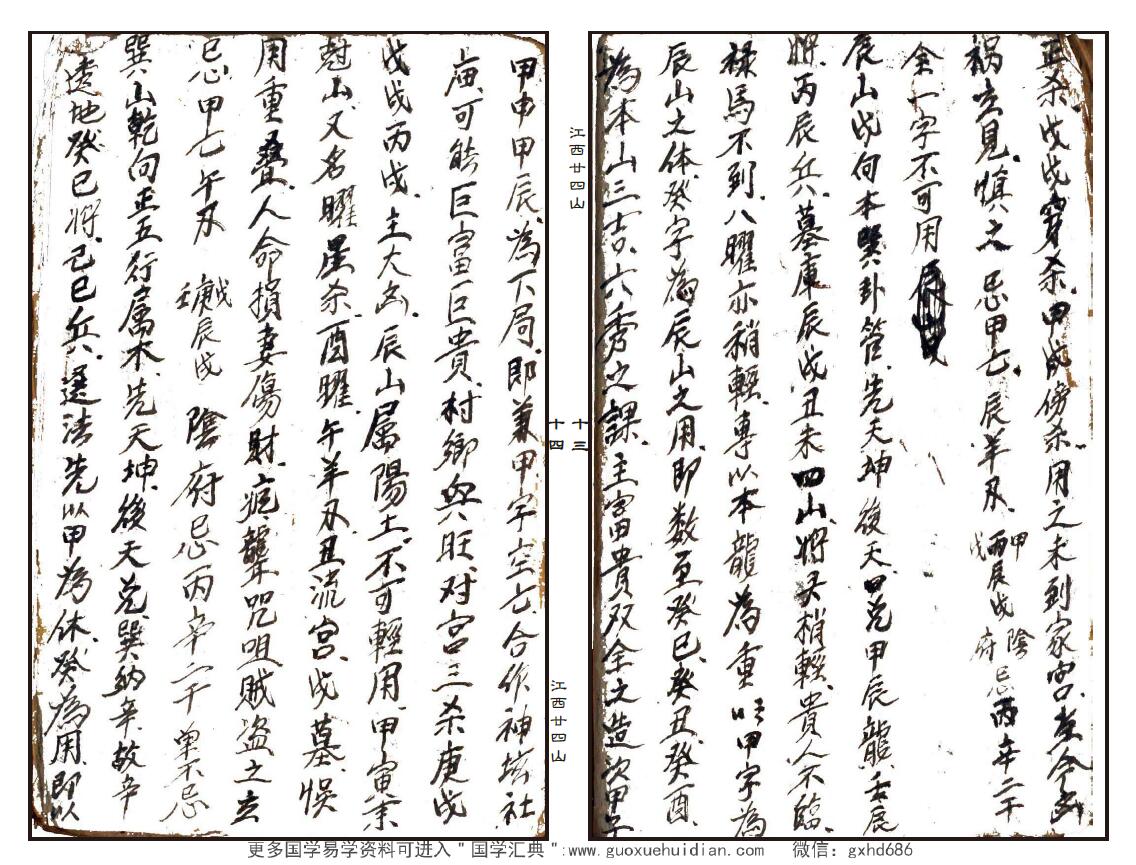 正杀戊戌穿杀甲戌傍杀用之未到家
祸立見慎之忌甲七辰羊刃甲丙戊辰戌陰府忌丙辛二干
全一字不可用
辰山戌向本巽卦管先天坤後天兑甲辰龍壬辰
將丙辰兵墓庫辰戌丑未四山將又稍輕貴人不臨
禄馬不到八曜亦稍輕專以本龍為重以甲字為
辰山之体癸字為辰山之用即数至癸巳癸丑癸酉
為本山三吉六秀之課主富貴双全之造次甲午
甲申甲辰為下局即兼甲字空亡合作神坛社
庙可能巨富巨貴村鄉興旺对宮三杀庚戌
戊戌丙戌主大凶辰山属陽土不可輕用甲寅来
尅山又名曜星杀酉曜午羊刃丑流宮戌墓悮
用重叠人命損妻傷財疯聾咒咀賊盗之立
忌甲七午刃戊庚壬辰戌陰府忌丙辛二干单不忌
巽山乾向正五行属木先天坤後天兑巽納辛故辛
透地癸巳將己巳兵選法先以甲為体癸為用即以
江西廿四山
十三
十四
江西廿四山
更多国学易学资料可进入"国学汇典":www.guoxuehuidian.com 微信：gxhd686